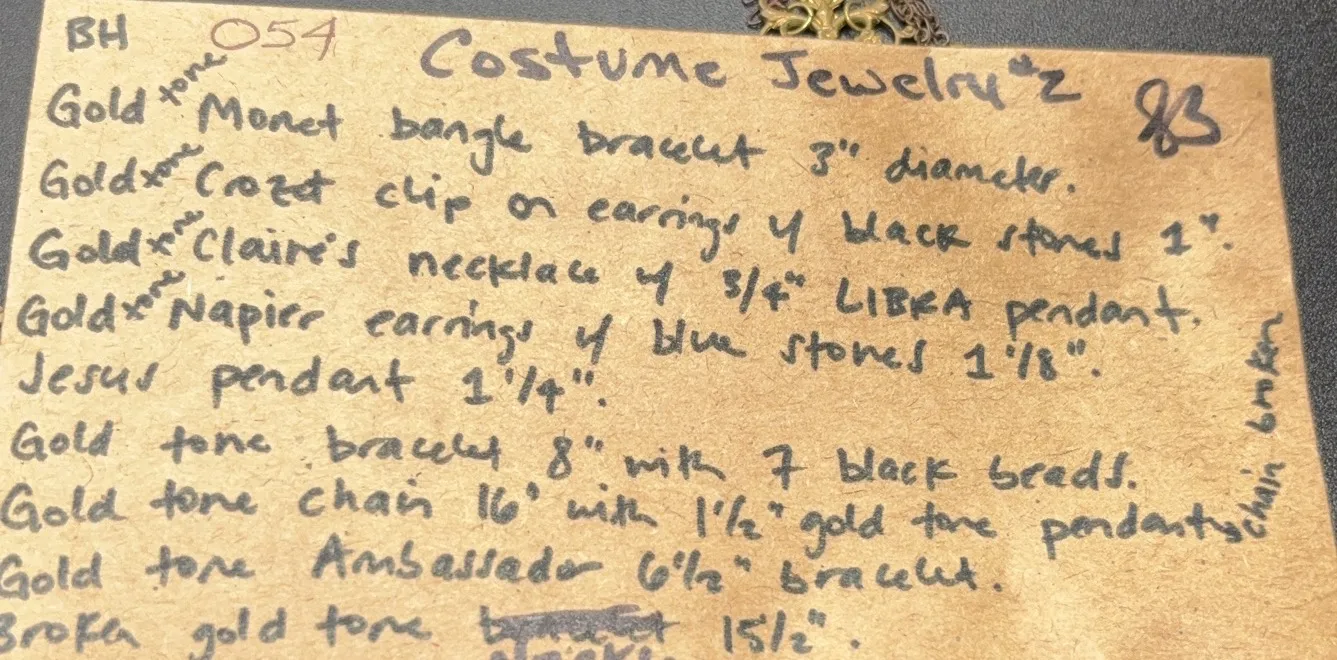 BH 054 Costume Jewelry #2
Gold tone Monet bangle bracelet 3" diameter.
Gold tone Crozet clip on earrings w/ black stones 1".
Gold tone Claire's necklace w/ 3/4" LIBRA pendant.
Gold tone Napier earrings w/ blue stones 1 1/8".
Jesus pendant 1 1/4".
Gold tone bracelet 8" with 7 black beads.
Gold tone chain 16' with 1 1/2" gold tone pendant, chain broken
Gold tone Ambassador 6 1/2" bracelet.
Broken gold tone 15 1/2".